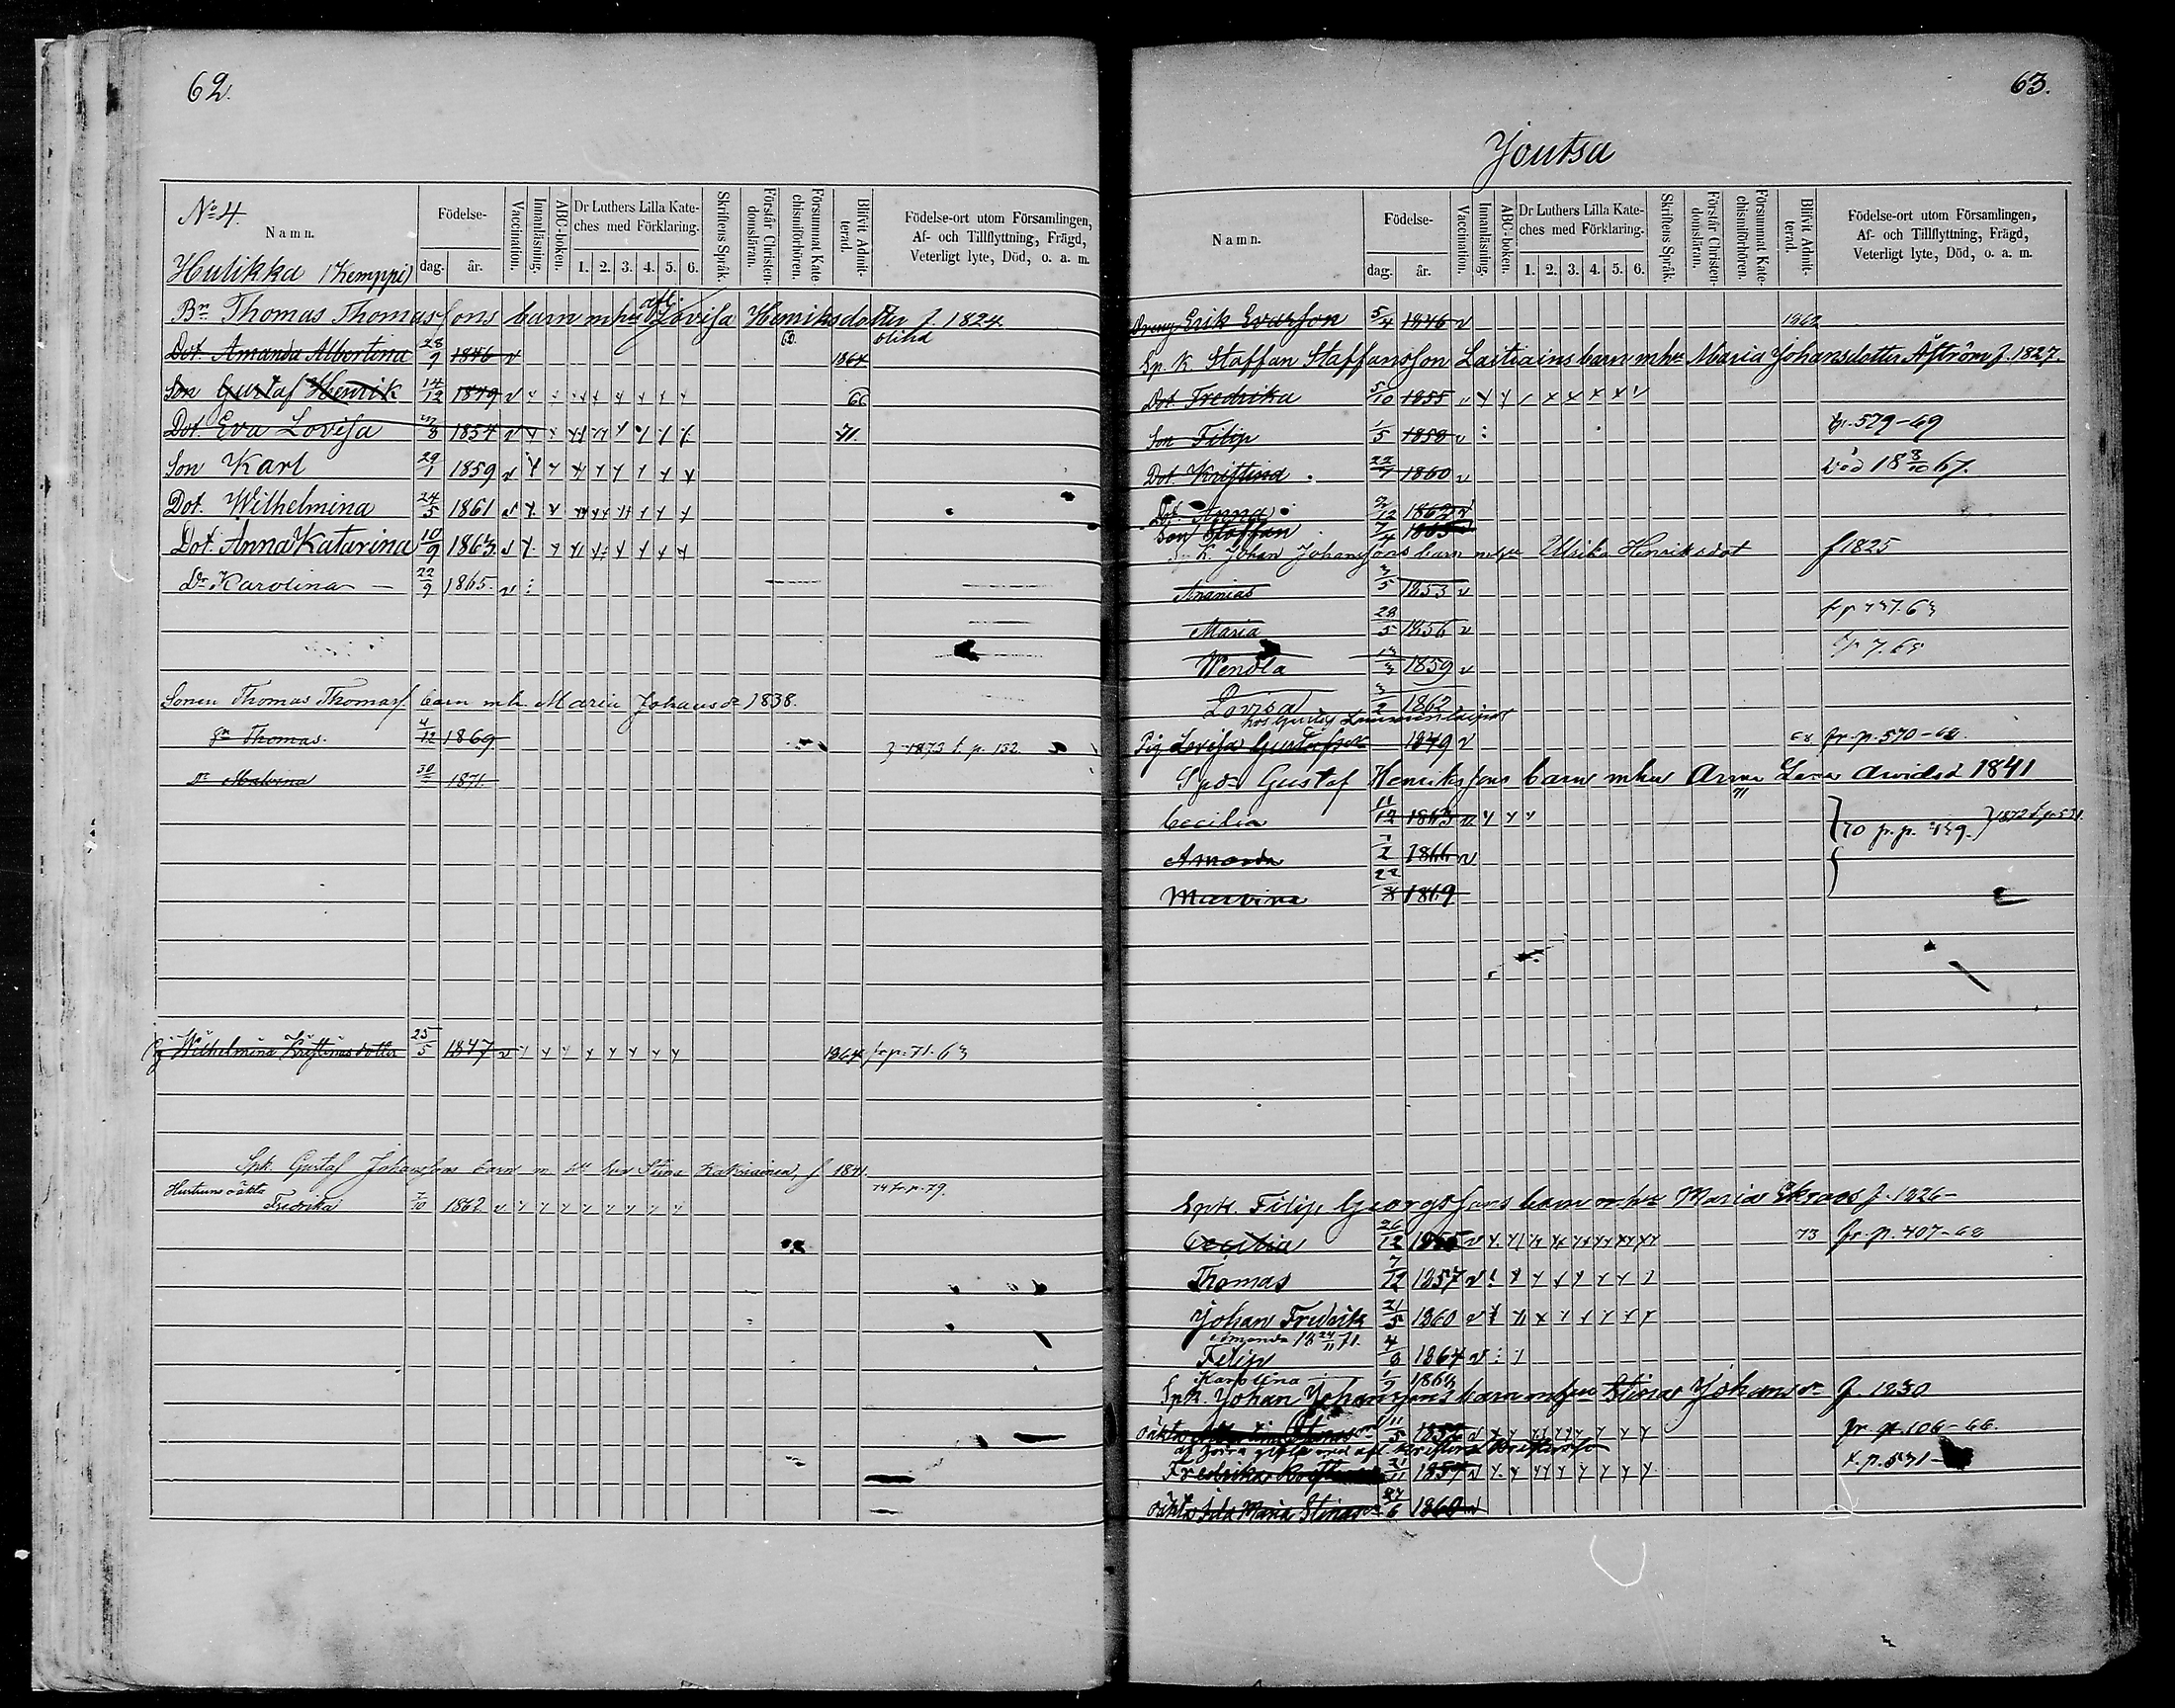 62.
No 4.
Namn.
Födelse-
dag.
år.
Vaccination.
Innanläsning.
ABC-boken.
Dr Luthers Lilla Kate-
ches med Förklaring.
1. 2. 3. 4. 5. 6.
Skriftens Språk.
Förstår Christen-
domsläran.
Försummat Kate-
chismiförhören.
Blifvit Admit-
terad.
Födelse-ort utom Församlingen,
Af- och Tillflyttning, Frägd,
Veterligt lyte, Död, o. a. m.
Hulikka (Kemppi)
Bn Thomas Thomassons barn mhu afl. Lovisa Henriksdotter f. 1824
Dot. Amanda Albertina 28/9 1846 v 1864
Son Gustaf Henrik 14/12 1849 v 66
Dot. Eva Lovisa 1854 v 71.
Son Karl 29/1 1859 v
Dot. Wilhelmina 24/5 1861 v
Dot. Anna Katarina 10/9 1863 v
Dr Karolina 22/9 1865 v
Sonen Thomas Thomass. barn mh. Maria Johansdr 1838.
Sn Thomas. 4/12 1869 1873 t. p. 132.
Dr Malvina 30 1871.
Pig Wilhelmina Kristinasdotter 25/5 1847 v 1864 fr p. 71. 63
Spk. Gustaf Johanssons barn m hu Stina f 1841.
Hustruns oäkta
Fredrika 7/10 1862 v 74 fr. p. 79.
63.
Joutsa
Namn.
Födelse-
dag.
år.
Vaccination.
Innanläsning.
ABC-boken.
Dr Luthers Lilla Kate-
ches med Förklaring.
1. 2. 3. 4. 5. 6.
Skriftens Språk.
Förstår Christen-
domsläran.
Försummat Kate-
chismiförhören.
Blifvit Admit-
terad.
Födelse-ort utom Församlingen,
Af- och Tillflyttning, Frägd,
Veterligt lyte, Död, o. a. m.
Dreng Erik Evasson 5/4 1846 v 1862
Sp. K. Staffan Staffansson Laitiains barn mhu Maria Johansdotter Åström f. 1827.
Dot. Fredrika 5/10 1855
Son Filip 1/5 1858 v fr. 529-69
Dot. Kristina 22/7 1860 v Död 18 8/10 67.
Dot. Anna 2/12 1862 v
Son Staffan 7/4 1865
Sp K. Johan Johanssons barn mhu Ulrika Henriksdot f 1825
Ananias 3/5 1853 v
Maria 28/5 1856 v
Wendla 13/3 1859 v
Lovisa 3/2 1862
Pig Lovisa Gustafsdr 1849 v 68 fr. p. 570-68.
Gustaf Henrikssons barn mhu Anna Lena Arvidsd 1841
Cecilia 11/12 1863 70 fr. p. 1872 t. p. 531.
Amanda 1866 v
Marvina 22 1869
Spk. Filip Georgssons barn mhu Maria Ekroos f. 1826-
Cecilia 26/12 1855 v 73 fr. p. 407-68
Thomas 7/12 1857 v
Johan Fredrik 21/5 1860 v
Amanda 18 24/11 71.
Filip 4/8 1864 v
Karolina 1/9 1868
Spk. Johan Johanssons barn mhu Stina Johansdr f 1830
oäkta 11/5 1852 v fr. p. 106-66.
Fredrika 21/11 1857 v t. p. 531-
oäkta Ida Maria Stinasdr 27/6 1860 v